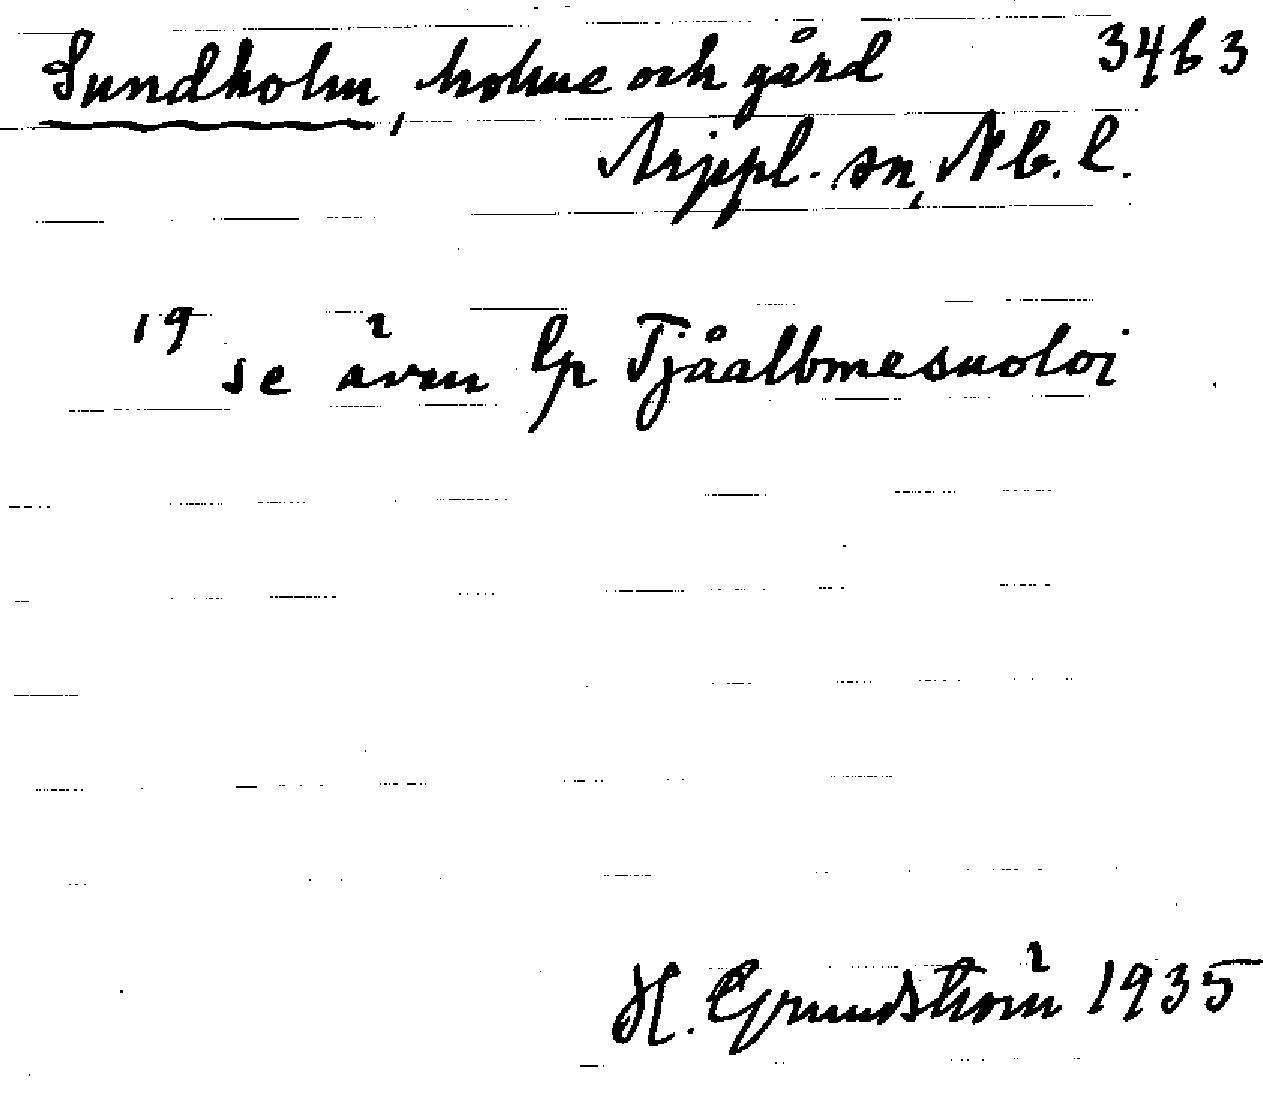 Sundholm, holme och gård 3463
Arjepl. sn, Nb. l.
19 se även lp Tjåalbmesuoloi
H. Grundström 1935